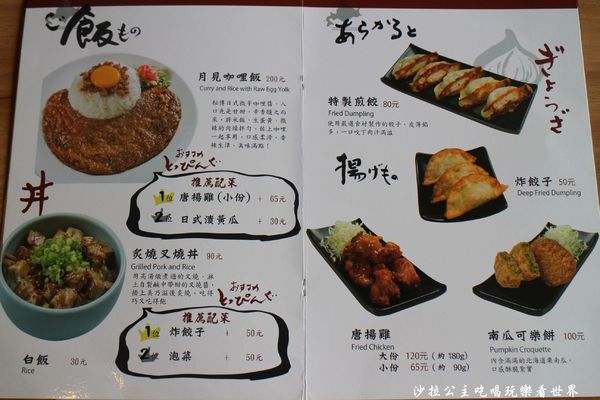 ご飯もの
月見咖哩飯 200元
Curry and Rice with Raw Egg Yolk
おすすめ
とっぴんぐ
推薦配菜
1位 唐揚雞(小份) + 65元
2位 日式漬黃瓜 + 30元
丼
炙燒叉燒丼 90元
Grilled Pork and Rice
おすすめ
とっぴんぐ
推薦配菜
1位 炸餃子 + 50元
2位 泡菜 + 50元
白飯 30元
Rice
あらかると
ぎょうざ
特製煎餃 80元
Fried Dumpling
使用嚴選食材製作的餃子，皮薄餡
多，一口咬下肉汁滿溢
揚げもの
炸餃子 50元
Deep Fried Dumpling
唐揚雞
Fried Chicken
大份 120元 (約 180g)
小份 65元 (約 90g)
南瓜可樂餅 100元
Pumpkin Croquette
內含滿滿的北海道栗南瓜，
口感酥脆緊實
沙拉公主吃喝玩樂看世界